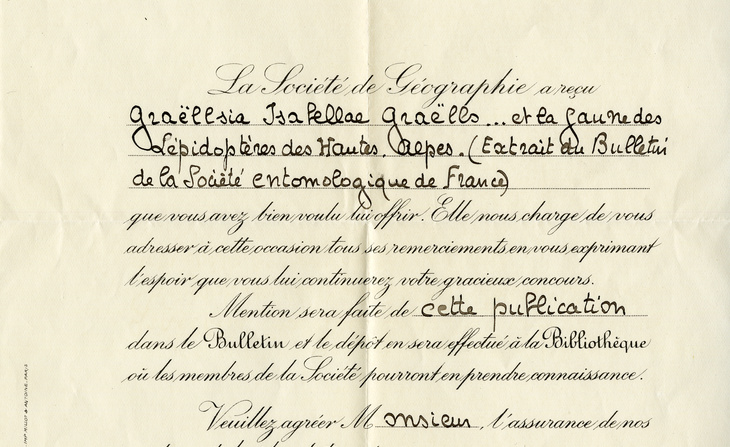 La Société de Géographie a reçu
Graëllsia Isabellae Graëlls... et la faune des
Lépidoptères des Hautes. Alpes. (Extrait du Bulletin
de la Société entomologique de France)
que vous avez bien voulu lui offrir. Elle nous charge de vous
adresser à cette occasion tous ses remerciements en vous exprimant
l'espoir que vous lui continuerez votre gracieux concours.
Mention sera faite de cette publication
dans le Bulletin et le dépôt en sera effectué à la Bibliothèque
où les membres de la Société pourront en prendre connaissance.
Veuillez agréer Monsieur, l'assurance de nos